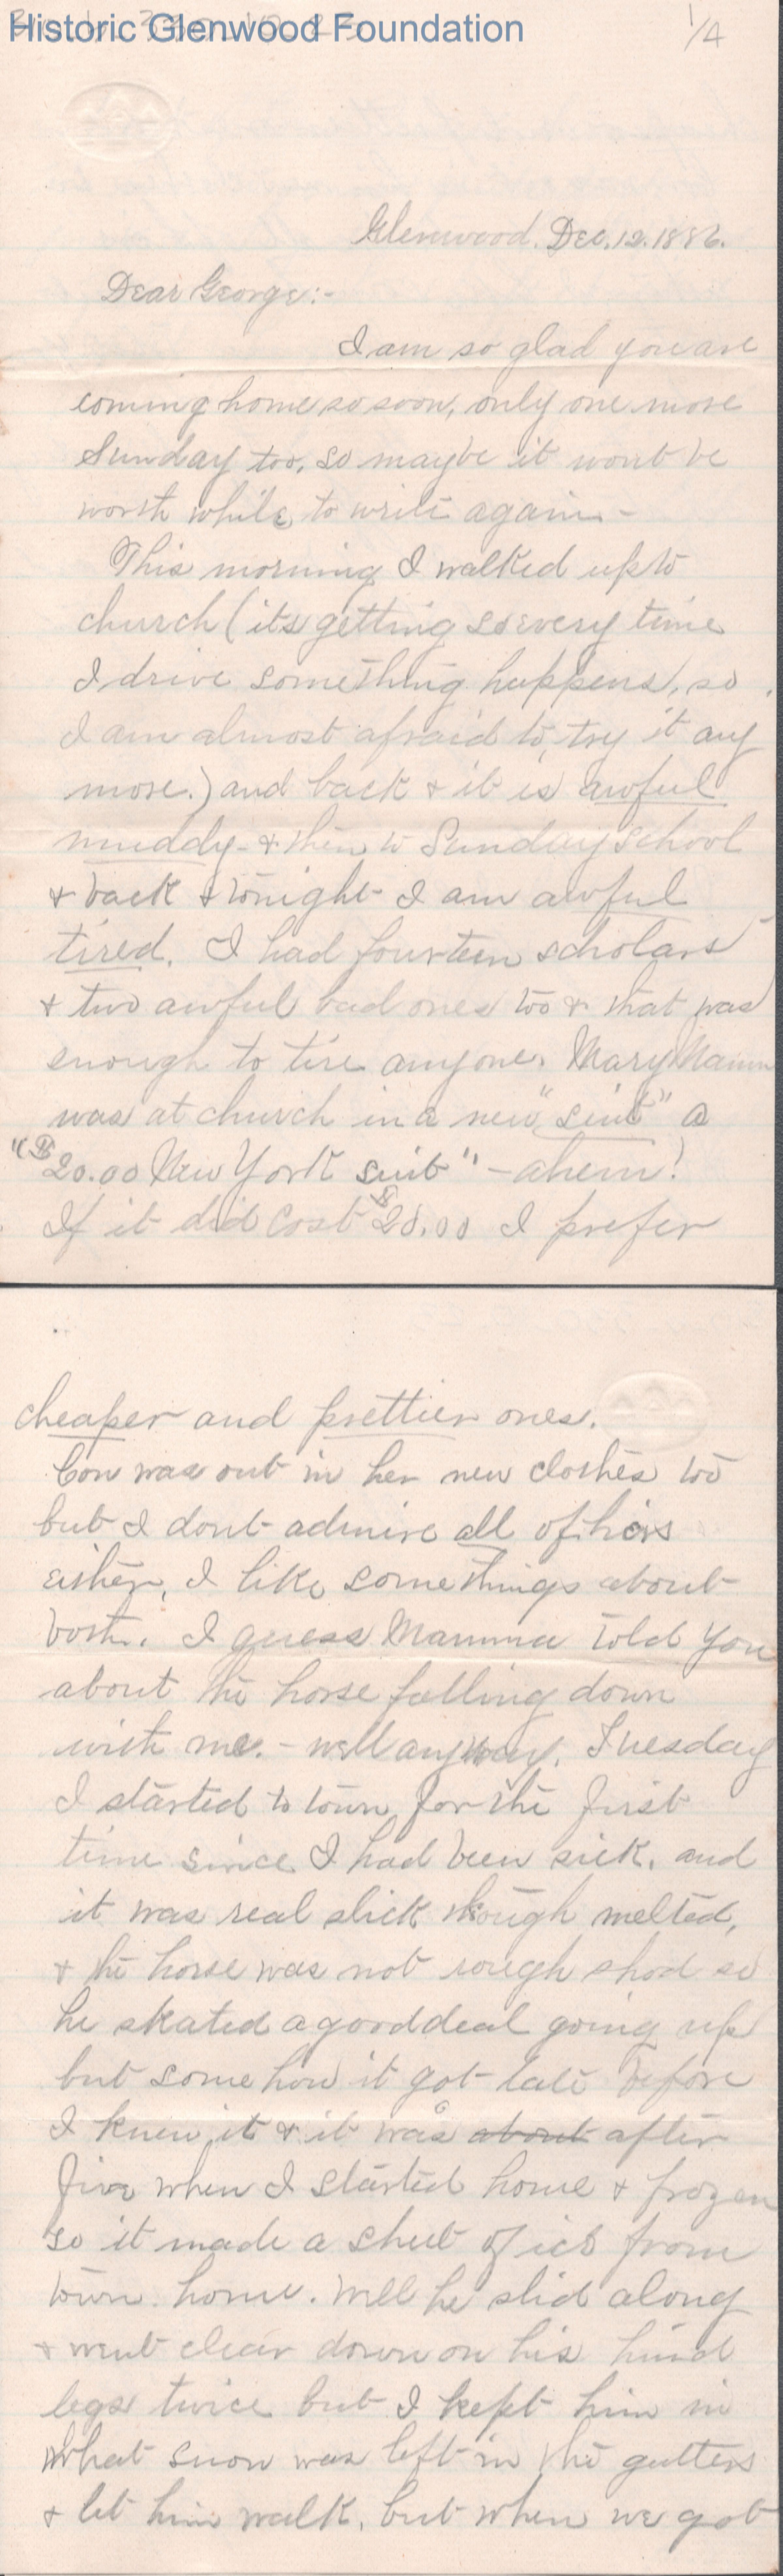 Historic Glenwood Foundation
1/4
Glenwood. Dec. 12. 1886.
Dear George:-
I am so glad you are
coming home so soon, only one more
Sunday too, so maybe it wont be
worth while to write again. -
This morning I walked up to
church (its getting so every time
I drive something happens, so
I am almost afraid to try it any
more.) and back & it is awful
muddy - & then to Sunday school
& back & tonight I am awful
tired. I had fourteen scholars
& two awful bad ones too & that was
enough to tire anyone. Mary Mann
was at church in a new "suit" a
"$20.00 New York suit" - ahem!
If it did cost $20.00 I prefer
cheaper and prettier ones.
Con was out in her new clothes too
but I dont admire all of hers
either, I like some things about
both. I guess Mamma told you
about the horse falling down
with me. - well anyway, Tuesday
I started to town for the first
time since I had been sick. and
it was real slick though melted,
& the horse was not rough shod so
he skated a good deal going up
but some how it got late before
I knew it & it was about after
five when I started home & frozen
so it made a sheet of ice from
town home. Well he slid along
& went clear down on his hind
legs twice but I kept him in
what snow was left in the gutters
& let him walk, but when we got